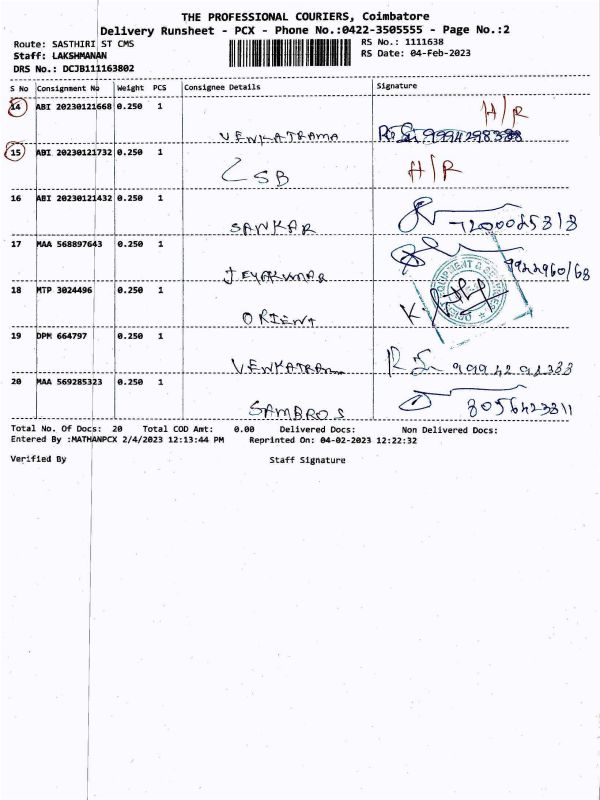 THE PROFESSIONAL COURIERS, Coimbatore
Delivery Runsheet - PCX - Phone No.:0422-3505555 - Page No.:2
Route: SASTHIRI ST CMS RS No.: 1111638
Staff: LAKSHMANAN RS Date: 04-Feb-2023
DRS No.: DCJB111163802
S No Consignment No Weight PCS Consignee Details Signature
14 ABI 20230121668 0.250 1 H/R
VENKATRAMA
15 ABI 20230121732 0.250 1 H/R
CSB
16 ABI 20230121432 0.250 1
SANKAR
17 MAA 568897643 1
JEYAKUMAR
18 MTP 3024496 0.250 1
ORIENT
19 DPM 664797 0.250 1
VENKATRAM
20 MAA 569285323 0.250 1
SAMBROS 8056423811
Total No. Of Docs: 20 Total COD Amt: 0.00 Delivered Docs: Non Delivered Docs:
Entered By :MATHANPCX 2/4/2023 12:13:44 PM Reprinted On: 04-02-2023 12:22:32
Verified By Staff Signature